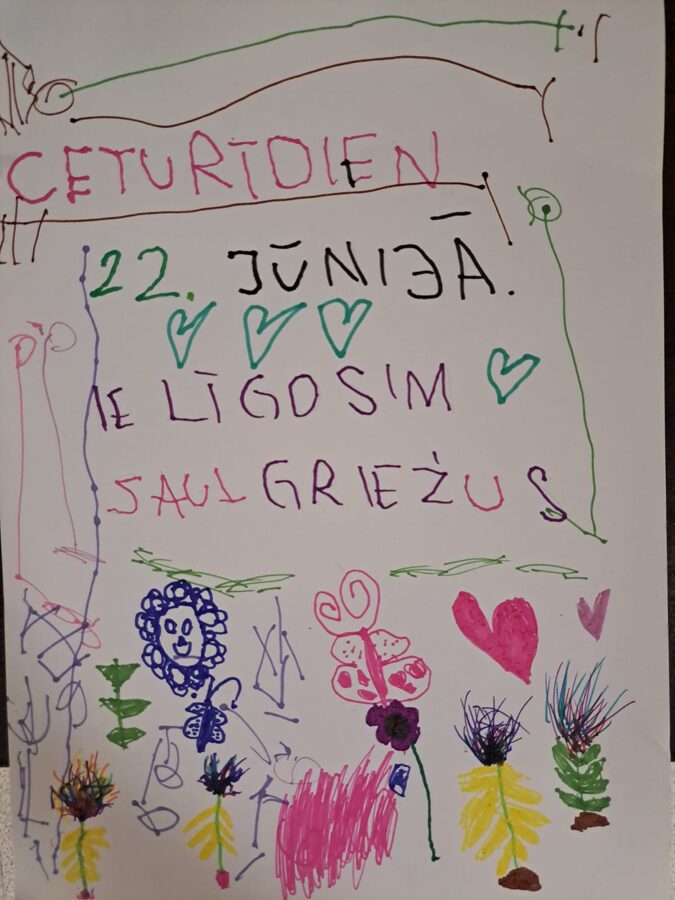 CETURTDIEN
22. JŪNIJĀ.
IELĪGOSIM
SAULGRIEŽUS